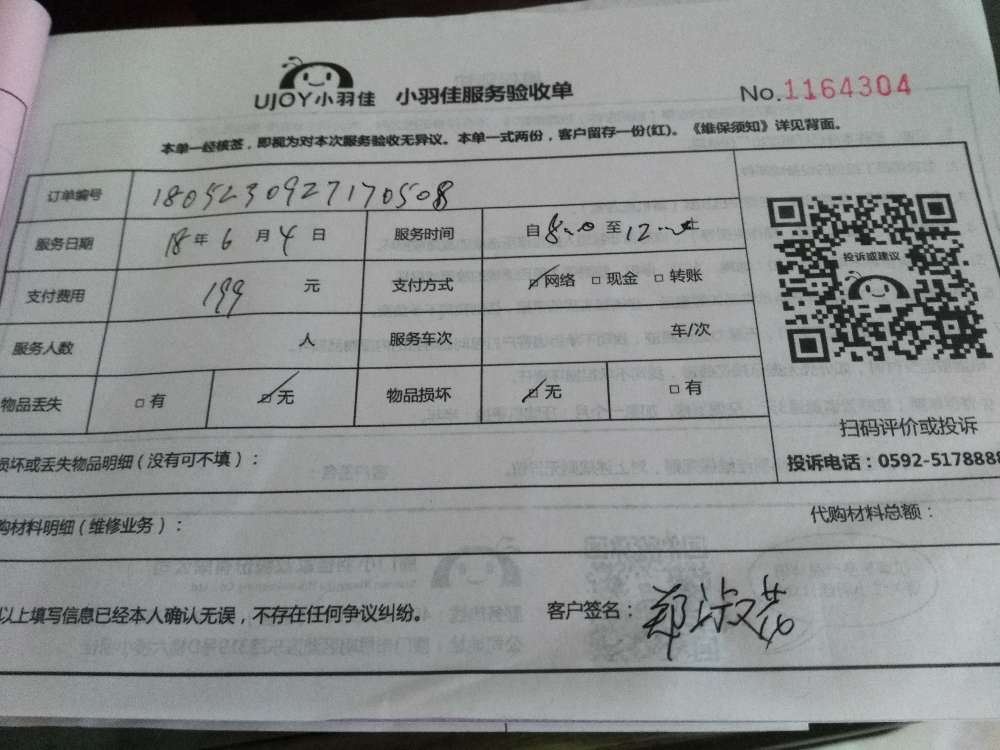 UJOY小羽佳 小羽佳服务验收单 No.1164304
本单一经核签，即视为对本次服务验收无异议。本单一式两份，客户留存一份(红)。《维保须知》详见背面。
订单编号 1805230927170508
服务日期 18年6月4日 服务时间 自8:00至12:00止
支付费用 199元 支付方式 网络 □现金 □转账
投诉或建议
服务人数 人 服务车次 车/次
物品丢失 □有 无 物品损坏 无 □有
扫码评价或投诉
投诉电话：0592-5178888
损坏或丢失物品明细（没有可不填）：
购材料明细（维修业务）： 代购材料总额：
以上填写信息已经本人确认无误，不存在任何争议纠纷。 客户签名：郑淑芬